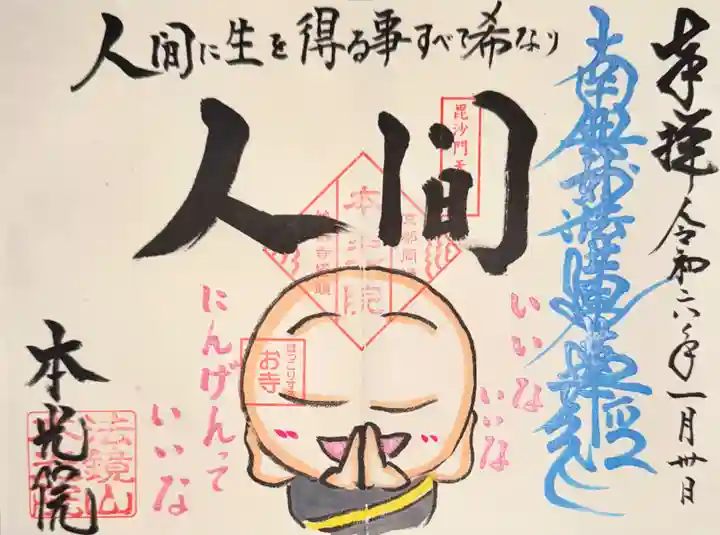 奉拝 令和六年一月卅日
南無妙法蓮華経
人間に生を得る事すべて希なり
人間
毘沙門天
本光院
京都
いいな
いいな
にんげんって
いいな
ほっこりする
お寺
本光院
法鏡山